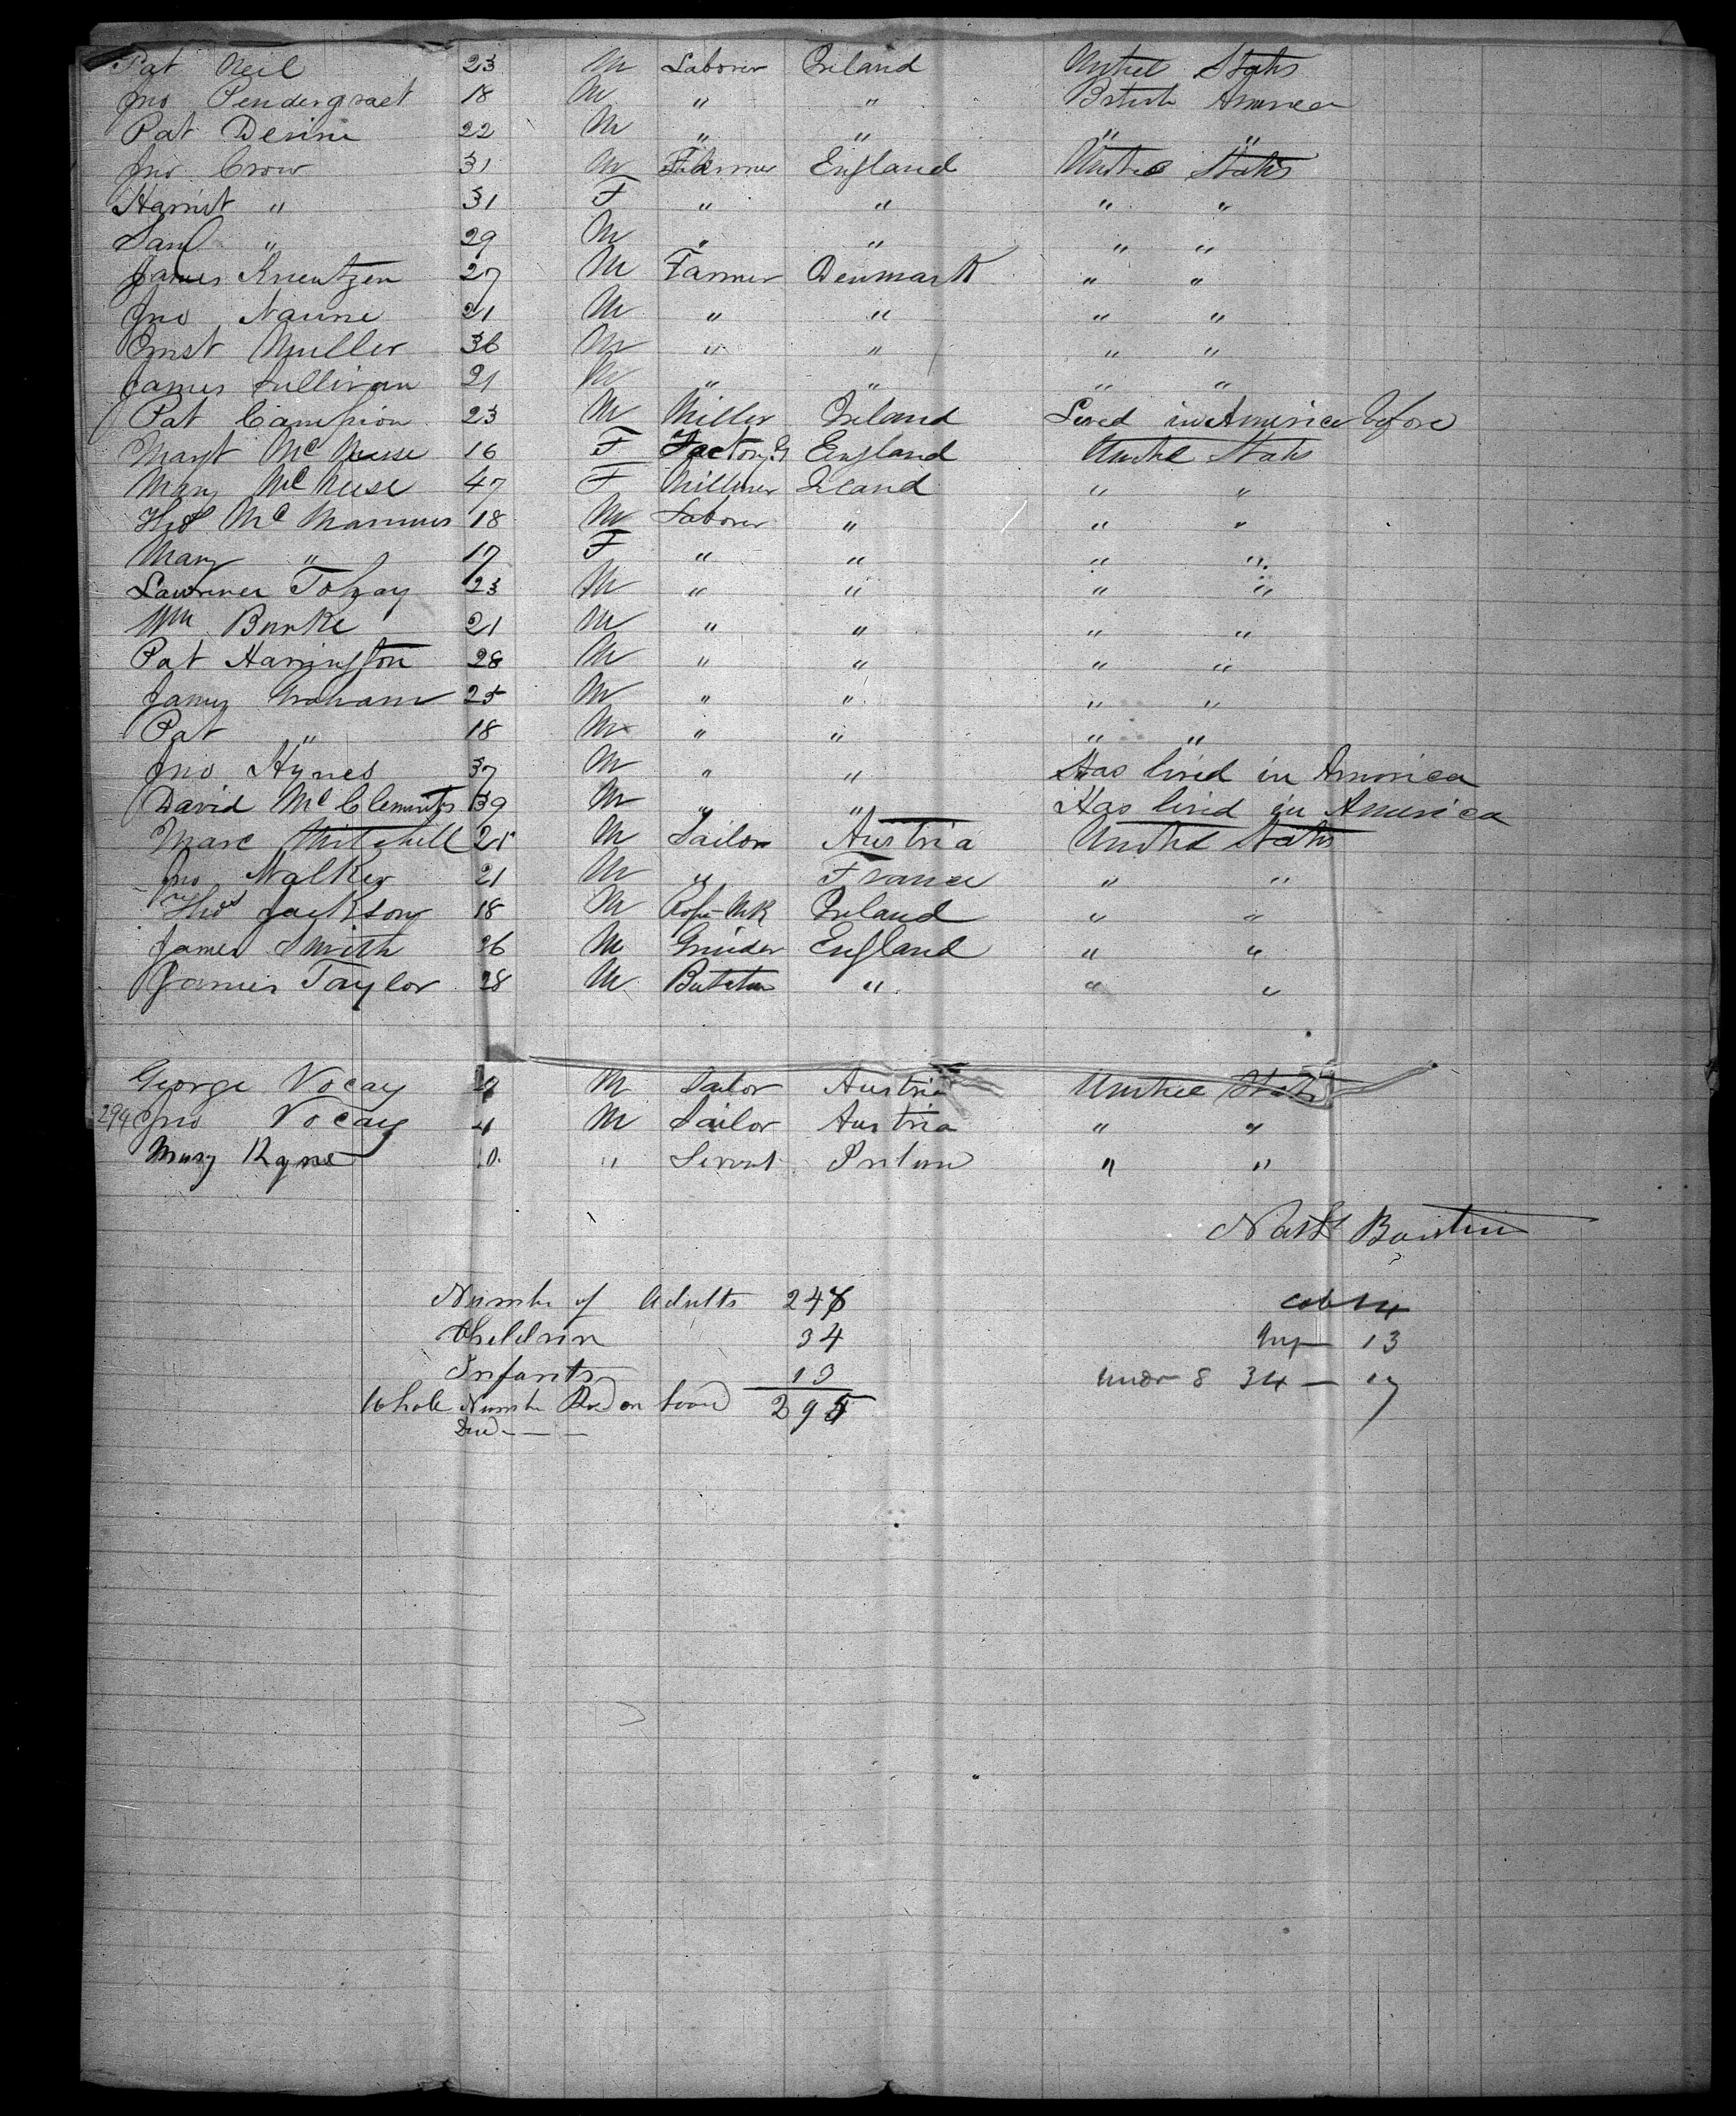 Pat Neil 23 M Laborer Ireland United States
Jno Pendergract 18 M " " British America
Pat Devine 22 M " " " "
Jno Crow 31 M Farmer England United States
Harriet " 31 F " " " "
Saml " 29 M " " " "
James Knentzen 27 M Farmer Denmark " "
Jno Naune 21 M " " " "
Ernst Muller 36 M " " " "
James Sullivan 21 M " " " "
Pat Campion 23 M Miller Ireland Lived in America before
Margt Mc Neese 16 F Factory G England United States
Mary Mc Neese 47 F Milliner Ireland " "
Thos Mc Manus 18 M Laborer " " "
Mary " 17 F " " " "
Lawrence 23 M " " " "
Wm Burke 21 M " " " "
Pat Harrington 28 M " " " "
James Graham 25 M " " " "
Pat " 18 M " " " "
Jno Hynes 37 M " " Has lived in America
David Mc Clements 39 M " " Has lived in America
Marc Mitchell 25 M Sailor Austria United States
Jno Walker 21 M " France " "
Thos Jackson 18 M Rope MK Ireland " "
James Smith 36 M Grinder England " "
James Taylor 28 M " " "
George Vocay M Sailor Austria United States
294 Jno Vocay M Sailor Austria " "
Mary Ryne " Servant " "
Number of Adults 248
Children 34 13
Infants 13 under 8 34 — 17
Whole Number on board 295
Died — —